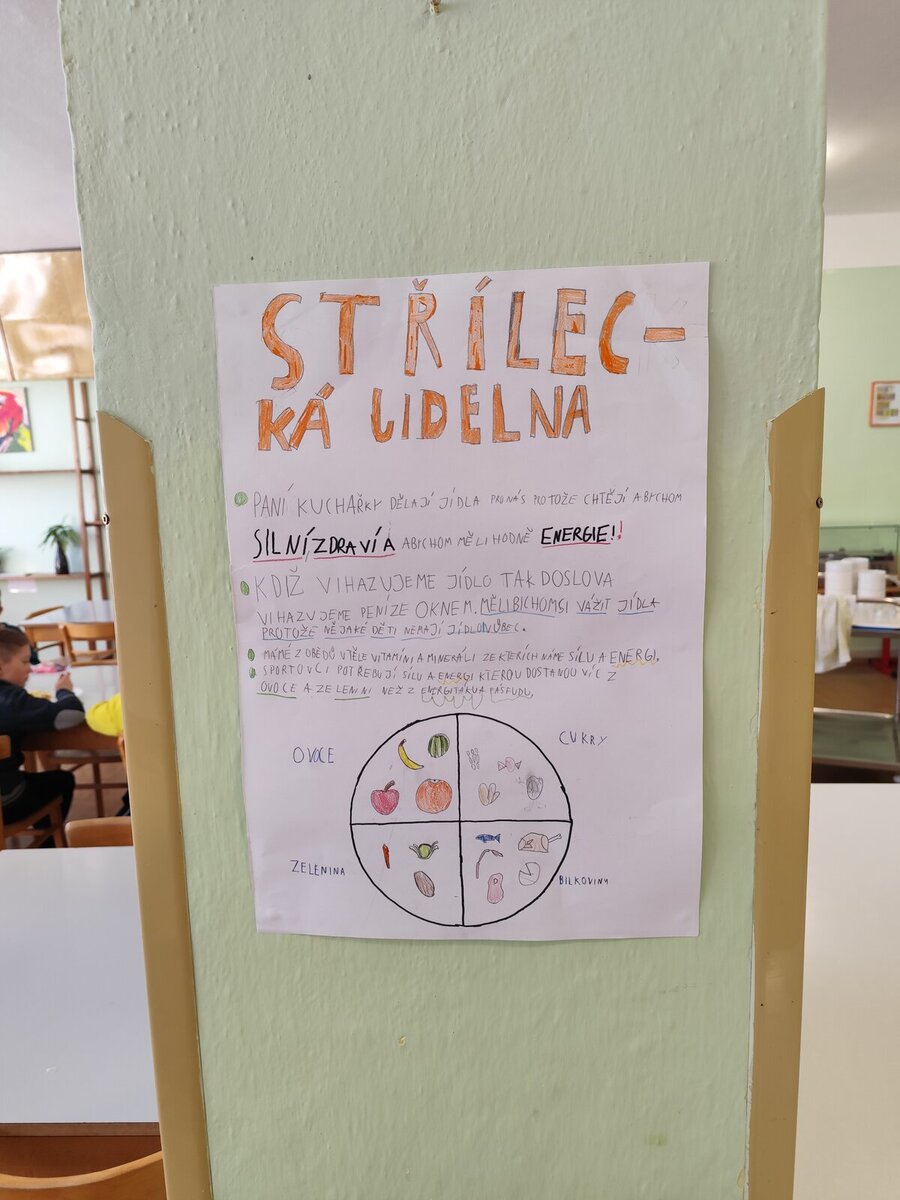 STŘÍLEC-
KÁ JIDELNA
PANÍ KUCHAŘKY DĚLAJÍ JÍDLA PRO NÁS PROTOŽE CHTĚJÍ ABYCHOM
SILNÍ ZDRAVÍ A ABYCHOM MĚLI HODNĚ ENERGIE!!
KDIŽ VIHAZUJEME JÍDLO TAK DOSLOVA
VIHAZUJEME PENÍZE OKNEM. MĚLI BICHOM SI VÁŽIT JÍDLA
PROTOŽE NĚJAKÉ DĚTI NEMAJÍ JÍDLO VŮBEC.
MÁME Z OBĚDŮ V TĚLE VITAMÍNI A MINERÁLI ZE KTERÍCH MÁME SÍLU A ENERGI.
SPORTOVCI POTŘEBUJÍ SÍLU A ENERGI KTEROU DOSTANOU VÍC Z
OVOCE A ZELENINI NEŽ Z ENERGITÁKU A FASFUDU,
OVOCE
CUKRY
ZELENINA
BILKOVINY